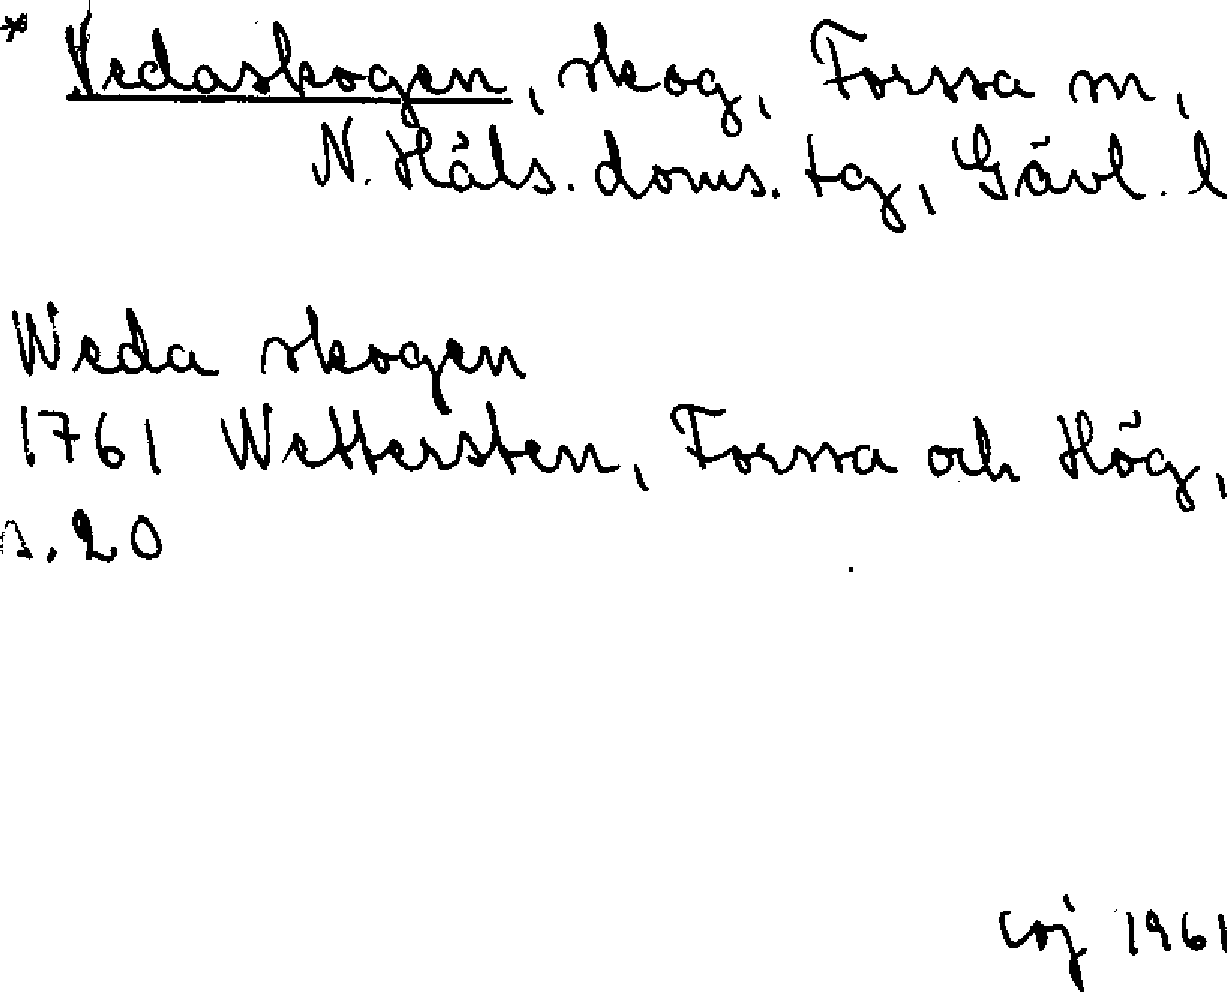 * Vedaskogen, skog, Forssa sn,
N. Häls. doms. tg, Gävl. l
Weda skogen
1761 Wettersten, Forssa och Hög,
s. 20
coj 1961